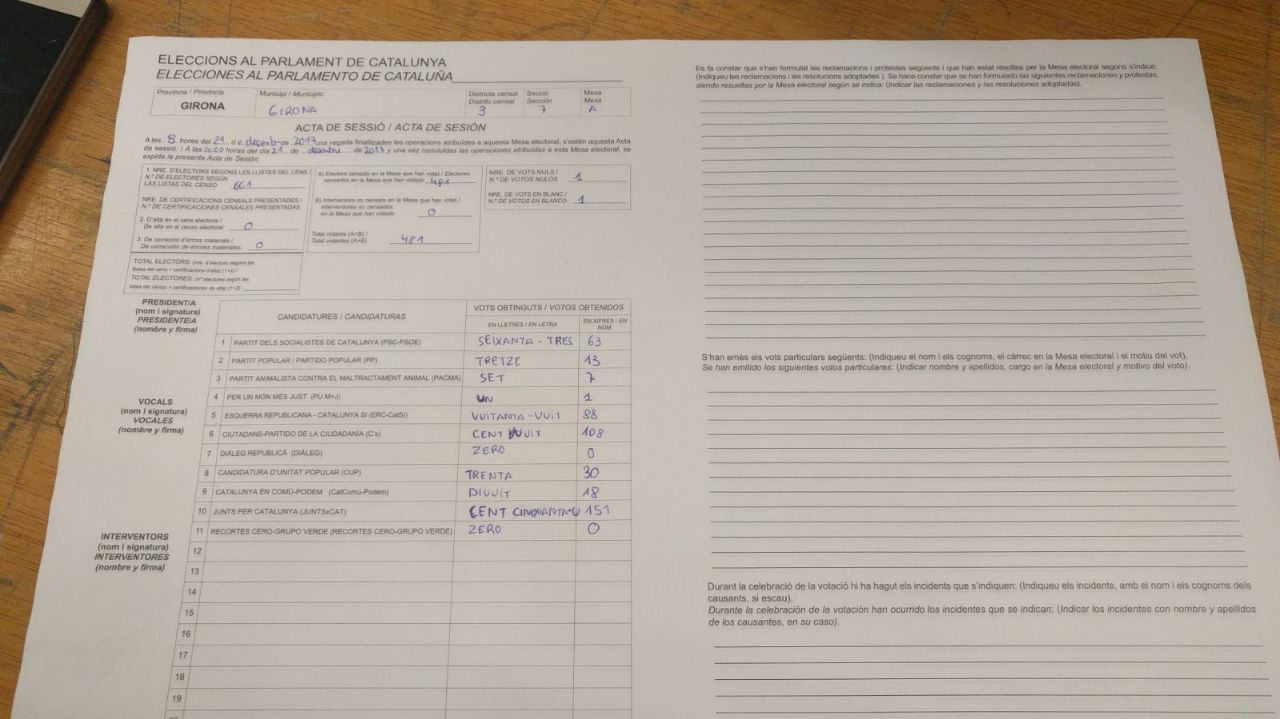 ELECCIONS AL PARLAMENT DE CATALUNYA
ELECCIONES AL PARLAMENTO DE CATALUÑA
Província / Provincia
GIRONA
Municipi / Municipio
GIRONA
Districte censal
Distrito censal
3
Secció
Sección
7
Mesa
Mesa
A
ACTA DE SESSIÓ / ACTA DE SESIÓN
A les 8 hores del 21 de desembre de 2017 una vegada finalitzades les operacions atribuïdes a aquesta Mesa electoral, s'estén aquesta Acta
de sessió: / A las 20:00 horas del día 21 de desembre de 2017 y una vez concluidas las operaciones atribuidas a esta Mesa electoral, se
expide la presente Acta de Sesión:
1. NRE. D'ELECTORS SEGONS LES LLISTES DEL CENS /
N.º DE ELECTORES SEGÚN
LAS LISTAS DEL CENSO 661
NRE. DE CERTIFICACIONS CENSALS PRESENTADES /
N.º DE CERTIFICACIONES CENSALES PRESENTADAS
2. D'alta en el cens electoral /
De alta en el censo electoral: 0
3. De correcció d'errors materials /
De corrección de errores materiales: 0
TOTAL ELECTORS: (nre. d'electors segons les
llistes del cens + certificacions d'alta) (1+2) /
TOTAL ELECTORES: (nº electores según las
listas del censo + certificaciones de alta) (1+2)
A) Electors censats en la Mesa que han votat / Electores
censados en la Mesa que han votado 481
B) Interventors no censats en la Mesa que han votat /
Interventores no censados
en la Mesa que han votado 0
Total votants (A+B) /
Total votantes (A+B) 481
NRE. DE VOTS NULS /
N.º DE VOTOS NULOS 1
NRE. DE VOTS EN BLANC /
N.º DE VOTOS EN BLANCO 1
PRESIDENT/A
(nom i signatura)
PRESIDENTE/A
(nombre y firma)
VOCALS
(nom i signatura)
VOCALES
(nombre y firma)
INTERVENTORS
(nom i signatura)
INTERVENTORES
(nombre y firma)
CANDIDATURES / CANDIDATURAS
VOTS OBTINGUTS / VOTOS OBTENIDOS
EN LLETRES / EN LETRA
EN XIFRES / EN
NÚM
1 PARTIT DELS SOCIALISTES DE CATALUNYA (PSC-PSOE) SEIXANTA-TRES 63
2 PARTIT POPULAR / PARTIDO POPULAR (PP) TRETZE 13
3 PARTIT ANIMALISTA CONTRA EL MALTRACTAMENT ANIMAL (PACMA) SET 7
4 PER UN MÓN MÉS JUST (PU M+J) UN 1
5 ESQUERRA REPUBLICANA - CATALUNYA SÍ (ERC-CatSí) VUITANTA-VUIT 88
6 CIUTADANS-PARTIDO DE LA CIUDADANÍA (C's) CENT VUIT 108
7 DIÀLEG REPUBLICÀ (DIÀLEG) ZERO 0
8 CANDIDATURA D'UNITAT POPULAR (CUP) TRENTA 30
9 CATALUNYA EN COMÚ-PODEM (CatComú-Podem) DIVUIT 18
10 JUNTS PER CATALUNYA (JUNTSxCAT) CENT CINQUANTA-U 151
11 RECORTES CERO-GRUPO VERDE (RECORTES CERO-GRUPO VERDE) ZERO 0
12
13
14
15
16
17
18
19
Es fa constar que s'han formulat les reclamacions i protestes següents i que han estat resoltes per la Mesa electoral segons s'indica:
(Indiqueu les reclamacions i les resolucions adoptades). Se hace constar que se han formulado las siguientes reclamaciones y protestas,
siendo resueltas por la Mesa electoral según se indica: (Indicar las reclamaciones y las resoluciones adoptadas).
S'han emès els vots particulars següents: (Indiqueu el nom i els cognoms, el càrrec en la Mesa electoral i el motiu del vot).
Se han emitido los siguientes votos particulares: (Indicar nombre y apellidos, cargo en la Mesa electoral y motivo del voto).
Durant la celebració de la votació hi ha hagut els incidents que s'indiquen: (Indiqueu els incidents, amb el nom i els cognoms dels
causants, si escau).
Durante la celebración de la votación han ocurrido los incidentes que se indican: (Indicar los incidentes con nombre y apellidos
de los causantes, en su caso).